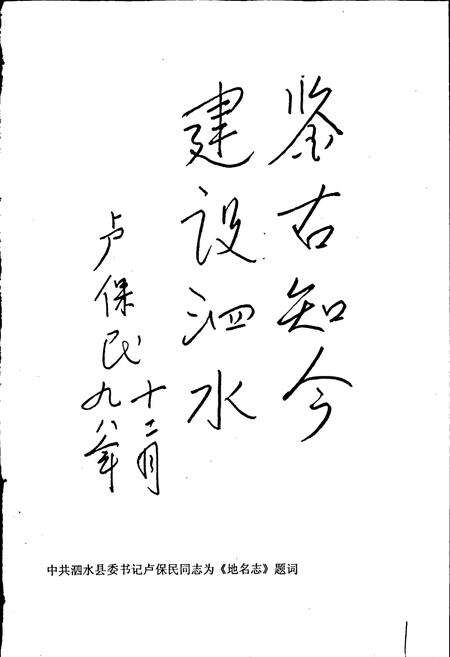 鉴古知今
建设泗水
卢保民
九八年
十二月
中共泗水县委书记卢保民同志为《地名志》题词